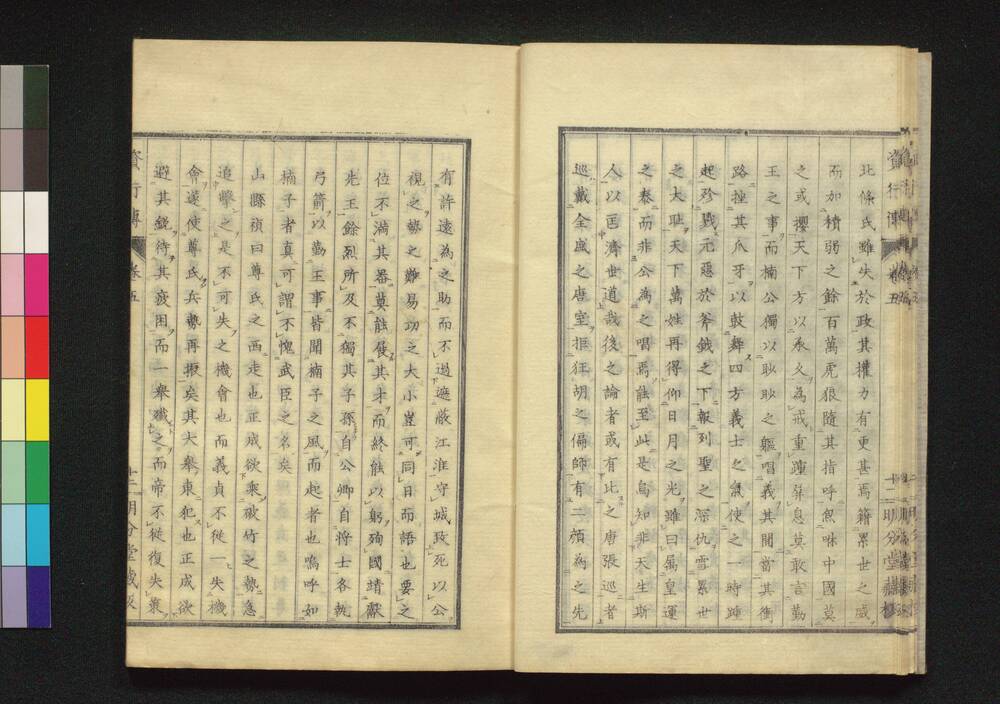 北條氏雖失於政其權力有更甚焉籍累世之威
而加積弱之餘百萬虎狼隨其指呼咆哮中國莫
之或攖天下方以承久為戒重踵屏息莫敢言勤
王之事而楠公獨以眇眇之軀唱義其間當其衝
路挫其爪牙以鼓舞四方義士之氣使之一時踵
起殄戮元惡於斧鉞之下報列聖之深仇雪累世
之大恥天下萬姓再得仰日月之光雖曰屬皇運
之泰而非公為之唱焉能至此是烏知非天生斯
人以匡濟世道哉後之論者或有比之唐張巡者
巡戴全盛之唐室拒狂胡之偏師有二顏為之先
有許遠為之助而不過遮蔽江淮守城致死以公
視之勢之難易功之大小豈可同日而語也要之
位不滿其器莫能展其才而終能以躬殉國靖獻
先王餘烈所及不獨其子孫自公卿自將士各執
弓箭以勤王事皆聞楠子之風而起者也嗚呼如
楠子者真可謂不愧武臣之名矣
山縣禎曰尊氏之西走也正成欲乘破竹之勢急
追擊之是不可失之機會也而義貞不從一失機
會遂使尊氏兵勢再振矣其大舉東犯也正成欲
避其銳待其疲困而一舉殲之而帝不從復失策
資行傳 卷五 十二 明分堂藏版